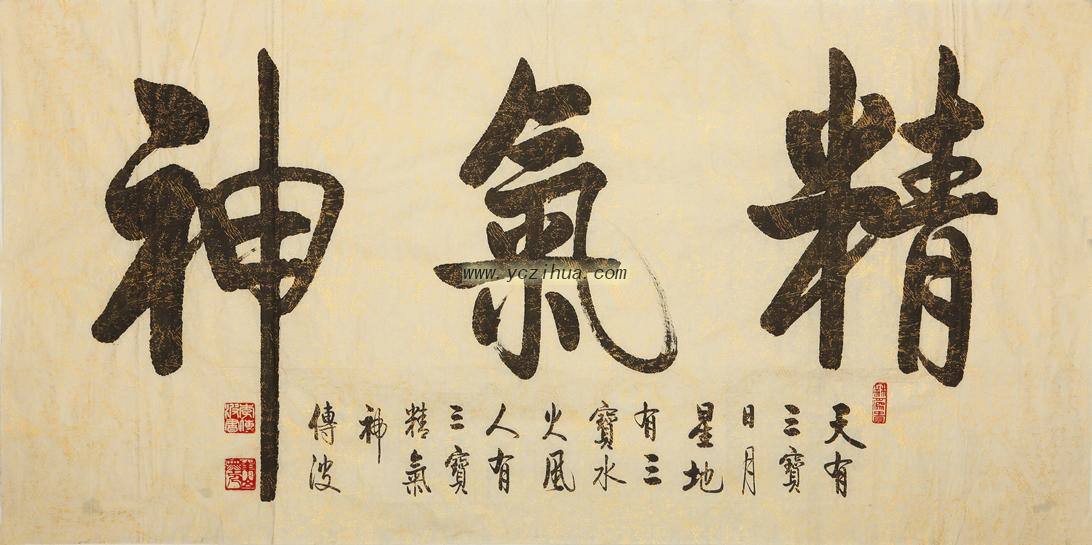 精氣神
天有
三寶
日月
星地
有三
寶水
火風
人有
三寶
精氣
神
傳波
www.yczihua.com